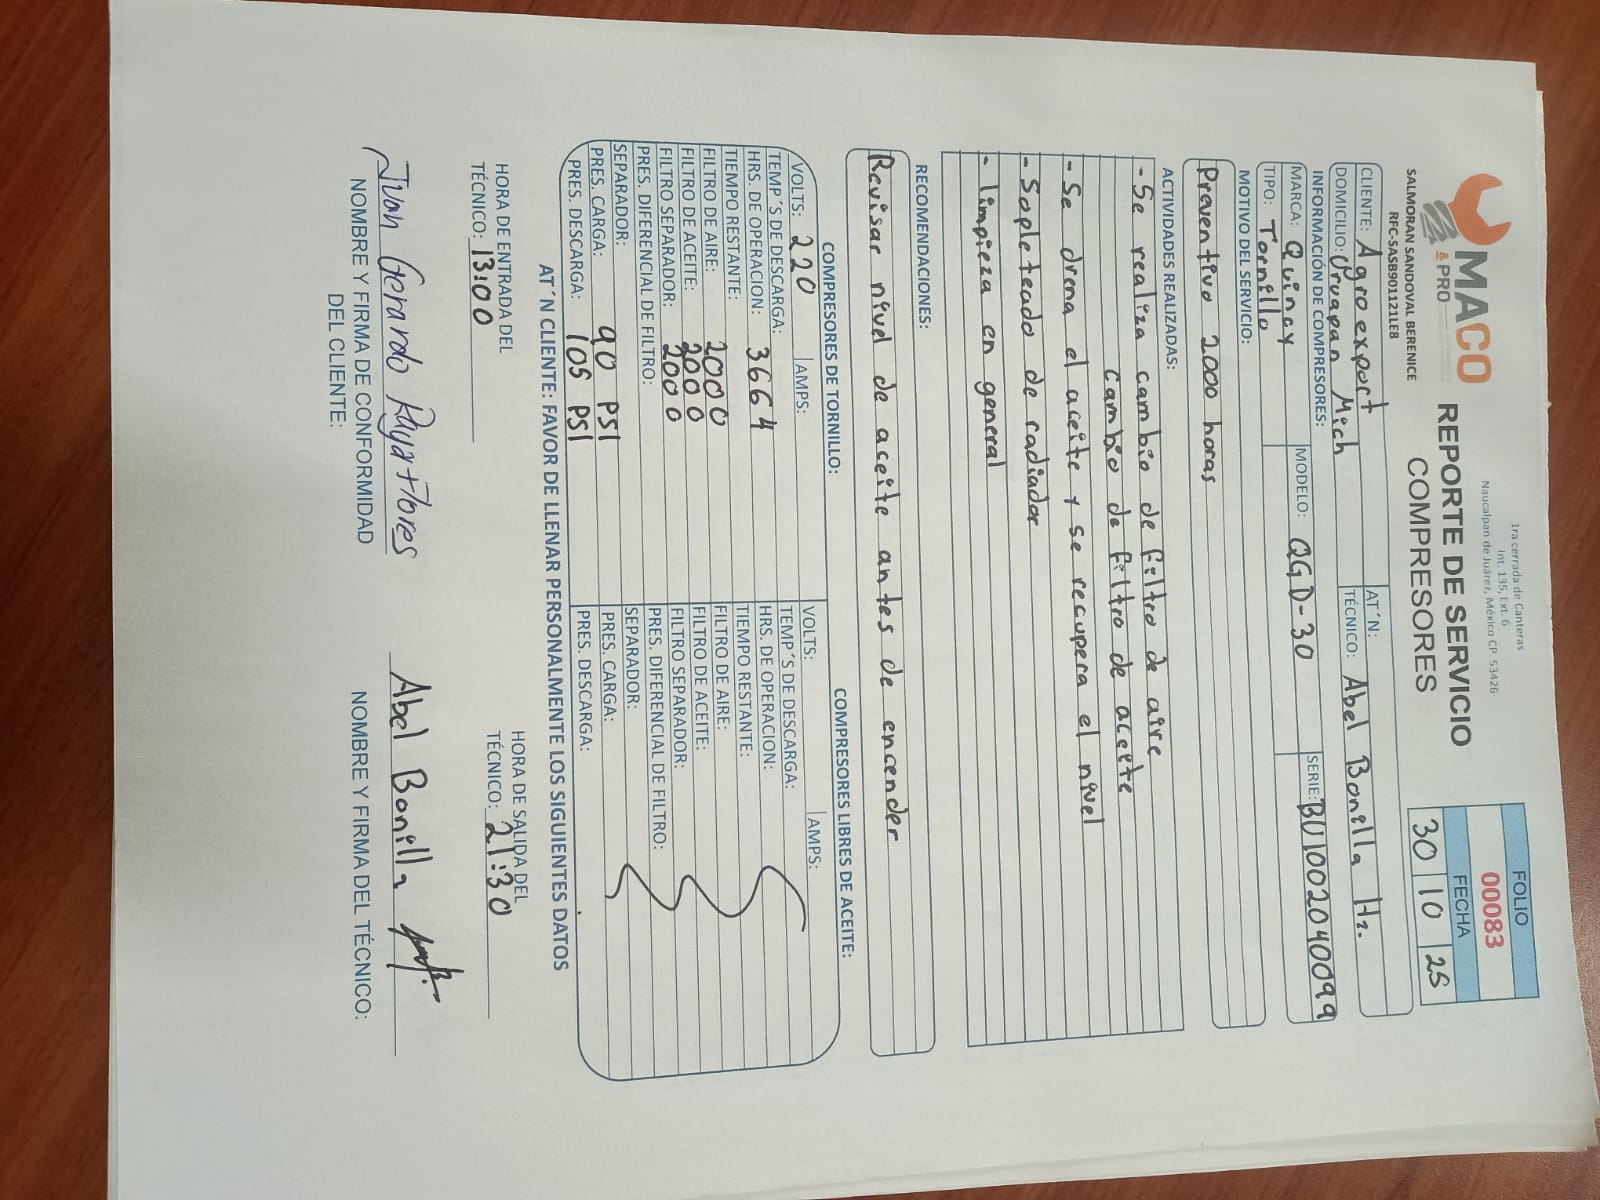 MACO
& PRO
SALMORAN SANDOVAL BERENICE
RFC-SASB901121LE8
1ra cerrada de Canteras
Int. 135, Ext. 6
Naucalpan de Juárez, México CP. 53426
REPORTE DE SERVICIO
COMPRESORES
FOLIO
00083
FECHA
30 10 25
CLIENTE: Agroexport AT´N:
DOMICILIO: Uruapan Mich TÉCNICO: Abel Bonilla Hz.
INFORMACIÓN DE COMPRESORES:
MARCA: Quincy MODELO: QGD-30 SERIE: BU1002040099
TIPO: Tornillo
MOTIVO DEL SERVICIO:
Preventivo 2000 horas
ACTIVIDADES REALIZADAS:
- Se realiza cambio de filtro de aire
cambio de filtro de aceite
- Se drena el aceite y se recupera el nivel
- Sopleteado de radiador
- limpieza en general
RECOMENDACIONES:
Revisar nivel de aceite antes de encender
COMPRESORES DE TORNILLO: COMPRESORES LIBRES DE ACEITE:
VOLTS: 220 AMPS: VOLTS: AMPS:
TEMP´S DE DESCARGA: TEMP´S DE DESCARGA:
HRS. DE OPERACION: 3664 HRS. DE OPERACION:
TIEMPO RESTANTE: TIEMPO RESTANTE:
FILTRO DE AIRE: 2000 FILTRO DE AIRE:
FILTRO DE ACEITE: 2000 FILTRO DE ACEITE:
FILTRO SEPARADOR: 2000 FILTRO SEPARADOR:
PRES. DIFERENCIAL DE FILTRO: PRES. DIFERENCIAL DE FILTRO:
SEPARADOR: SEPARADOR:
PRES. CARGA: 90 PSI PRES. CARGA:
PRES. DESCARGA: 105 PSI PRES. DESCARGA:
AT´N CLIENTE: FAVOR DE LLENAR PERSONALMENTE LOS SIGUIENTES DATOS
HORA DE ENTRADA DEL
TÉCNICO: 13:00
HORA DE SALIDA DEL
TÉCNICO: 21:30
Juan Gerardo Flores
NOMBRE Y FIRMA DE CONFORMIDAD
DEL CLIENTE:
Abel Bonilla
NOMBRE Y FIRMA DEL TÉCNICO: